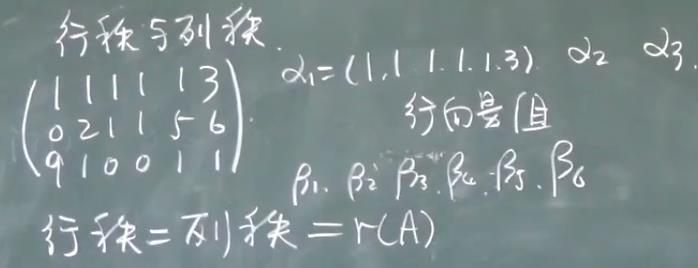 行秩与列秩.
1 1 1 1 1 3
0 2 1 1 5 6
9 1 0 0 1 1
α₁=(1,1 1.1.1.3) α₂ α₃.
行向量组
β₁. β₂ β₃.β₄.β₅.β₆
行秩=列秩=r(A)